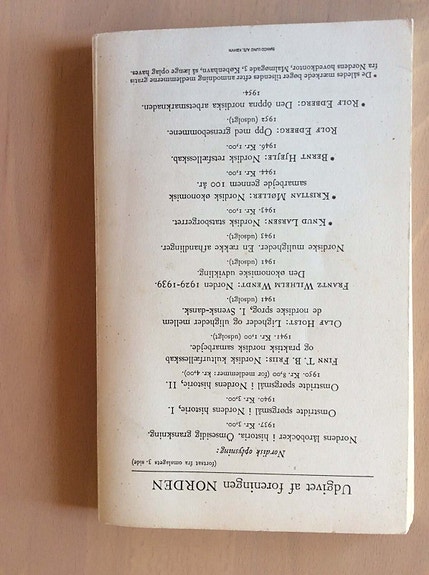 Udgivet af foreningen NORDEN
(fortsat fra omslagets 3. side)
Nordisk oplysning:
Nordens läroböcker i historia. Omsesidig granskning.
1937. Kr. 3,00.
Omstridte spørgsmål i Nordens historie, I.
1940. Kr. 3,00.
Omstridte spørgsmål i Nordens historie, II.
1950. Kr. 8,00 (for medlemmer: kr. 4,00).
FINN T. B. FRIIS: Nordisk kulturfællesskab
og praktisk nordisk samarbejde.
1941. Kr. 1,00 (udsolgt).
OLAF HOLST: Ligheder og uligheder mellem
de nordiske sprog, I. Svensk-dansk.
1941 (udsolgt).
FRANTZ WILHELM WENDT: Norden 1929-1939.
Den økonomiske udvikling.
1941 (udsolgt).
Nordiske muligheder. En række afhandlinger.
1943 (udsolgt).
* KNUD LARSEN: Nordisk statsborgerret.
1943. Kr. 1,00.
* KRISTIAN MØLLER: Nordisk økonomisk
samarbejde gennem 100 år.
1944. Kr. 1,00.
* BERNT HJEJLE: Nordisk retsfællesskab.
1946. Kr. 1,00.
ROLF EDBERG: Opp med grensebommene.
1952 (udsolgt).
* ROLF EDBERG: Den öppna nordiska arbetsmarknaden.
1954.
* De således mærkede bøger tilsendes efter anmodning medlemmerne gratis
fra Nordens hovedkontor, Malmøgade 3, København, så længe oplag haves.